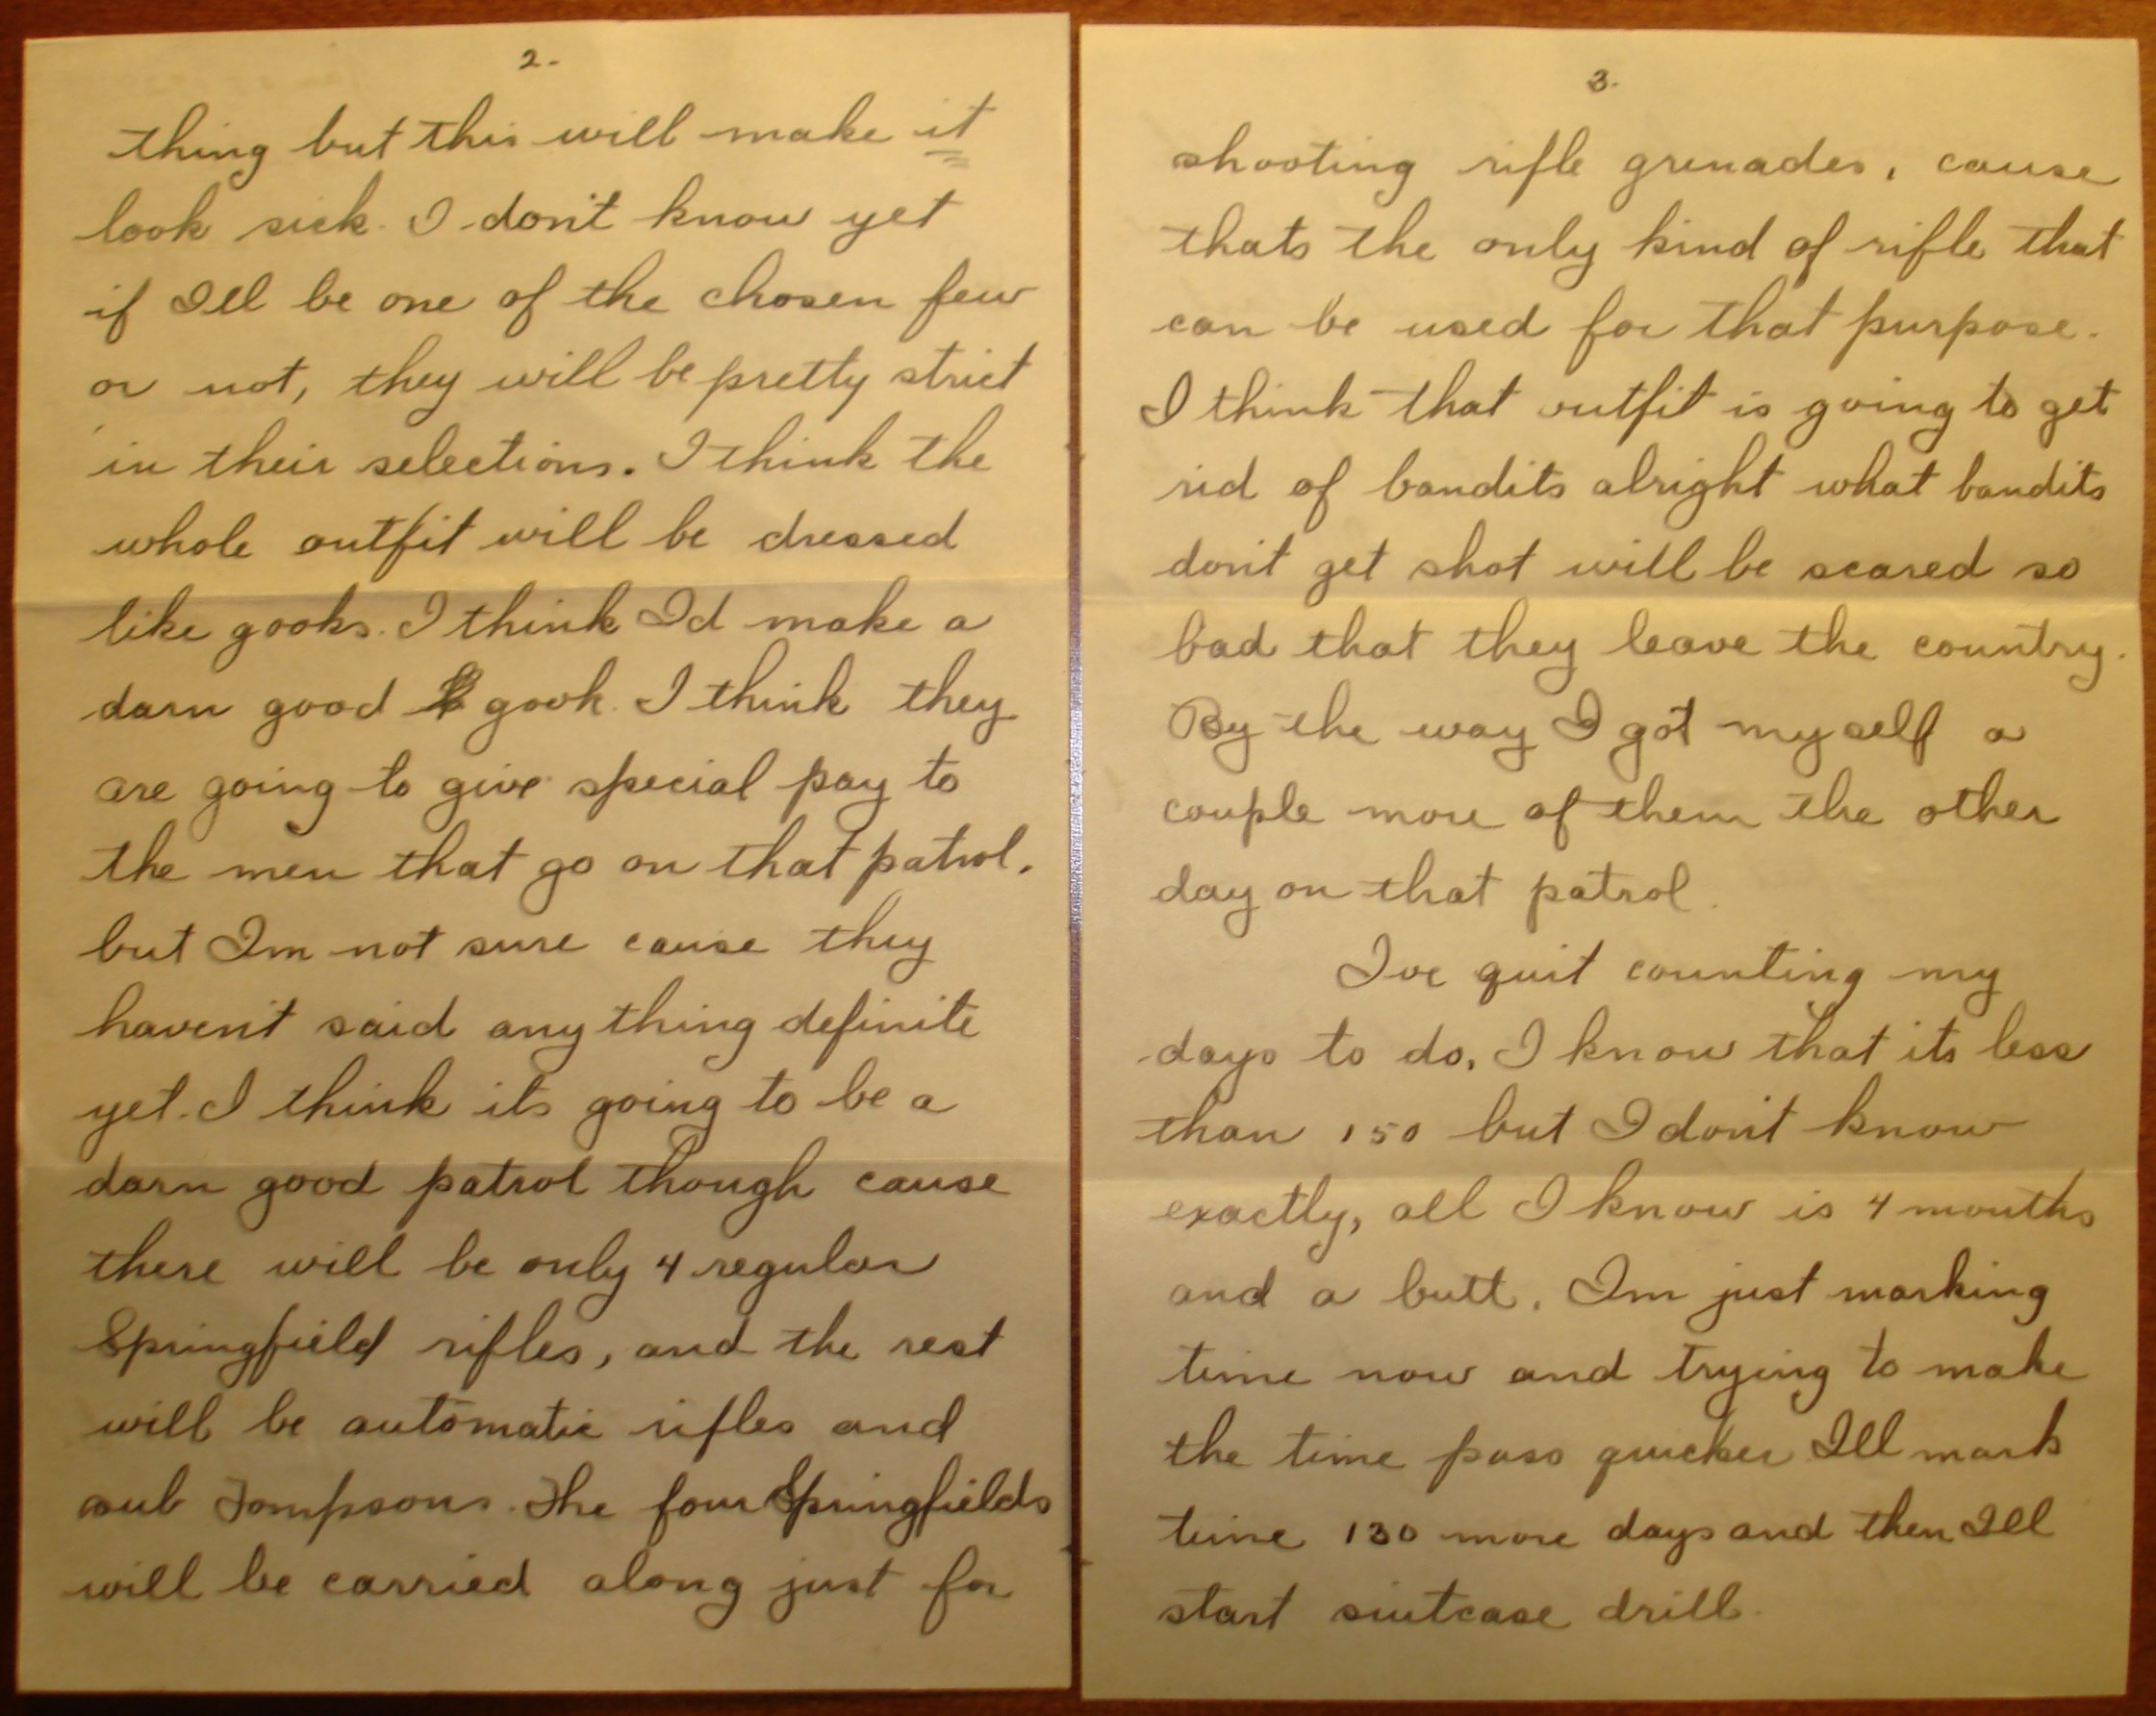 2.-
thing but this will make it
look sick. I don't know yet
if I'll be one of the chosen few
or not, they will be pretty strict
in their selections. I think the
whole outfit will be dressed
like gooks. I think I'd make a
darn good gook. I think they
are going to give special pay to
the men that go on that patrol.
but I'm not sure cause they
haven't said any thing definite
yet. I think its going to be a
darn good patrol though cause
there will be only 4 regular
Springfield rifles, and the rest
will be automatic rifles and
sub Tompsons. The four Springfields
will be carried along just for
3.
shooting rifle grenades, cause
thats the only kind of rifle that
can be used for that purpose.
I think that outfit is going to get
rid of bandits alright what bandits
don't get shot will be scared so
bad that they leave the country.
By the way I got myself a
couple more of them the other
day on that patrol.
I've quit counting my
days to do, I know that its less
than 150 but I don't know
exactly, all I know is 4 months
and a butt. I'm just marking
time now and trying to make
the time pass quicker I'll mark
time 130 more days and then I'll
start suitcase drill.